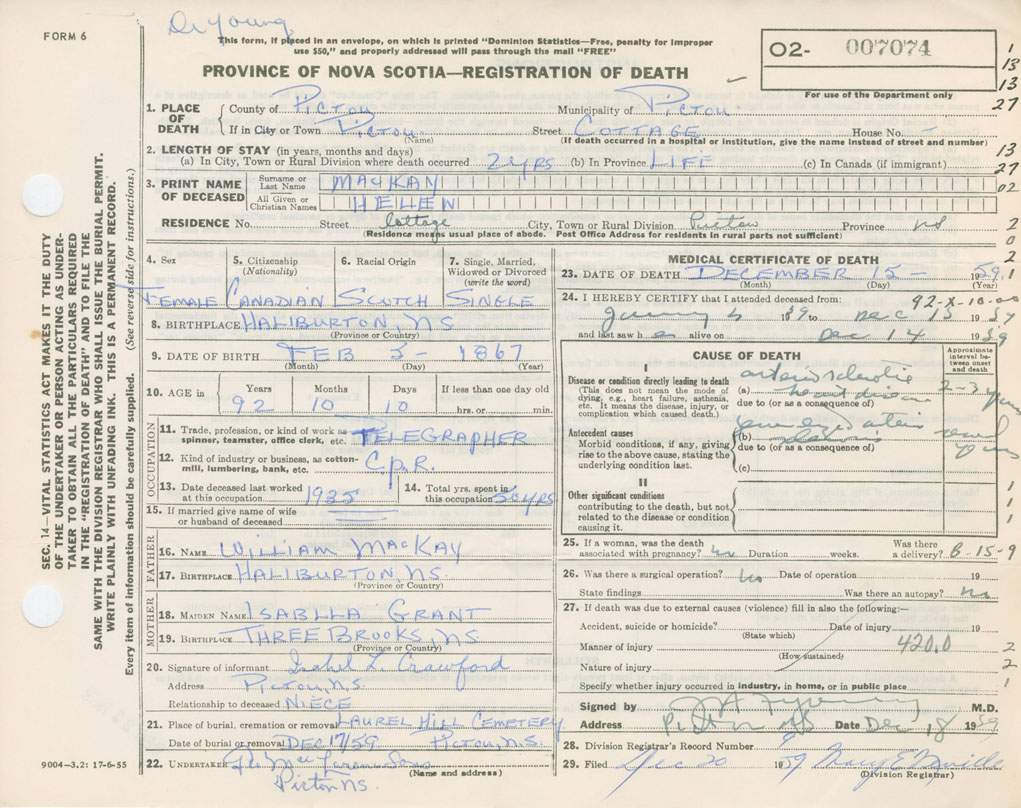 De Young
FORM 6
This form, if placed in an envelope, on which is printed "Dominion Statistics—Free, penalty for improper
use $50," and properly addressed will pass through the mail "FREE"
O2- 007074
For use of the Department only
PROVINCE OF NOVA SCOTIA—REGISTRATION OF DEATH
1
13
13
27
1. PLACE OF DEATH County of PICTOU Municipality of PICTOU
If in City or Town PICTOU (Name) Street COTTAGE House No. -
(If death occurred in a hospital or institution, give the name instead of street and number)
2. LENGTH OF STAY (in years, months and days)
(a) In City, Town or Rural Division where death occurred 2 yrs (b) In Province LIFE (c) In Canada (if immigrant)
13
27
02
3. PRINT NAME OF DECEASED Surname or Last Name MACKAY
All Given or Christian Names HELEN
RESIDENCE No. Street Cottage City, Town or Rural Division Pictou Province NS
(Residence means usual place of abode. Post Office Address for residents in rural parts not sufficient)
2
0
2
1
4. Sex 5. Citizenship (Nationality) 6. Racial Origin 7. Single, Married, Widowed or Divorced (write the word)
FEMALE CANADIAN SCOTCH SINGLE
8. BIRTHPLACE HALIBURTON, NS
(Province or Country)
9. DATE OF BIRTH FEB 5 - 1867
(Month) (Day) (Year)
10. AGE in Years Months Days If less than one day old
92 10 10 hrs. or min.
OCCUPATION
11. Trade, profession, or kind of work as spinner, teamster, office clerk, etc. TELEGRAPHER
12. Kind of industry or business, as cotton-mill, lumbering, bank, etc. C.P.R.
13. Date deceased last worked at this occupation 1925 14. Total yrs. spent in this occupation 50 yrs
15. If married give name of wife or husband of deceased
FATHER
16. NAME WILLIAM MACKAY
17. BIRTHPLACE HALIBURTON, NS.
(Province or Country)
MOTHER
18. MAIDEN NAME ISABLLA GRANT
19. BIRTHPLACE THREE BROOKS, NS
(Province or Country)
20. Signature of informant Isabel L. Crawford
Address PICTOU, N.S.
Relationship to deceased NIECE
21. Place of burial, cremation or removal LAUREL HILL CEMETERY
Date of burial or removal DEC 17/59 PICTOU, N.S.
22. UNDERTAKER Sons
(Name and address)
Pictou NS.
9004-3.2: 17-6-55
MEDICAL CERTIFICATE OF DEATH
23. DATE OF DEATH DECEMBER 15 - 1959
(Month) (Day) (Year)
24. I HEREBY CERTIFY that I attended deceased from: 92-X-10-00
19 59 to Dec 13 1959
and last saw h alive on Dec 14 1959
CAUSE OF DEATH
Approximate interval between onset and death
I
Disease or condition directly leading to death
(This does not mean the mode of dying, e.g., heart failure, asthenia, etc. It means the disease, injury, or complication which caused death.)
(a) arteriosclerotic heart disease 2-3 years
due to (or as a consequence of)
Antecedent causes
Morbid conditions, if any, giving rise to the above cause, stating the underlying condition last.
(b)
due to (or as a consequence of)
(c)
II
Other significant conditions
contributing to the death, but not related to the disease or condition causing it.
1
1
1
25. If a woman, was the death associated with pregnancy? no Duration weeks. Was there a delivery? B-15-9
26. Was there a surgical operation? no Date of operation 19
State findings Was there an autopsy? no
27. If death was due to external causes (violence) fill in also the following:—
Accident, suicide or homicide? (State which) Date of injury 19
Manner of injury (How sustained) 420.0
Nature of injury
Specify whether injury occurred in industry, in home, or in public place
2
2
1
Signed by M.D.
Address Pictou NS Date Dec 18 1959
28. Division Registrar's Record Number
29. Filed Dec 20 1959 Mary E.
(Division Registrar)
SEC. 14—VITAL STATISTICS ACT MAKES IT THE DUTY
OF THE UNDERTAKER OR PERSON ACTING AS UNDER-
TAKER TO OBTAIN ALL THE PARTICULARS REQUIRED
IN THE "REGISTRATION OF DEATH" AND TO FILE THE
SAME WITH THE DIVISION REGISTRAR WHO SHALL ISSUE THE BURIAL PERMIT.
WRITE PLAINLY WITH UNFADING INK. THIS IS A PERMANENT RECORD.
Every item of information should be carefully supplied. (See reverse side for instructions.)